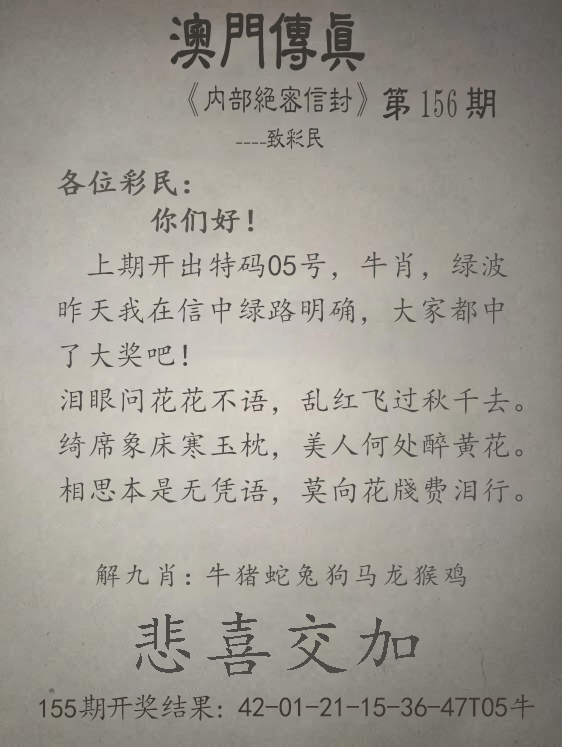 澳門傳眞
《内部絕密信封》第156期
----致彩民
各位彩民：
你们好！
上期开出特码05号，牛肖，绿波
昨天我在信中绿路明确，大家都中
了大奖吧！
泪眼问花花不语，乱红飞过秋千去。
绮席象床寒玉枕，美人何处醉黄花。
相思本是无凭语，莫向花牋费泪行。
解九肖：牛猪蛇兔狗马龙猴鸡
悲喜交加
155期开奖结果：42-01-21-15-36-47T05牛